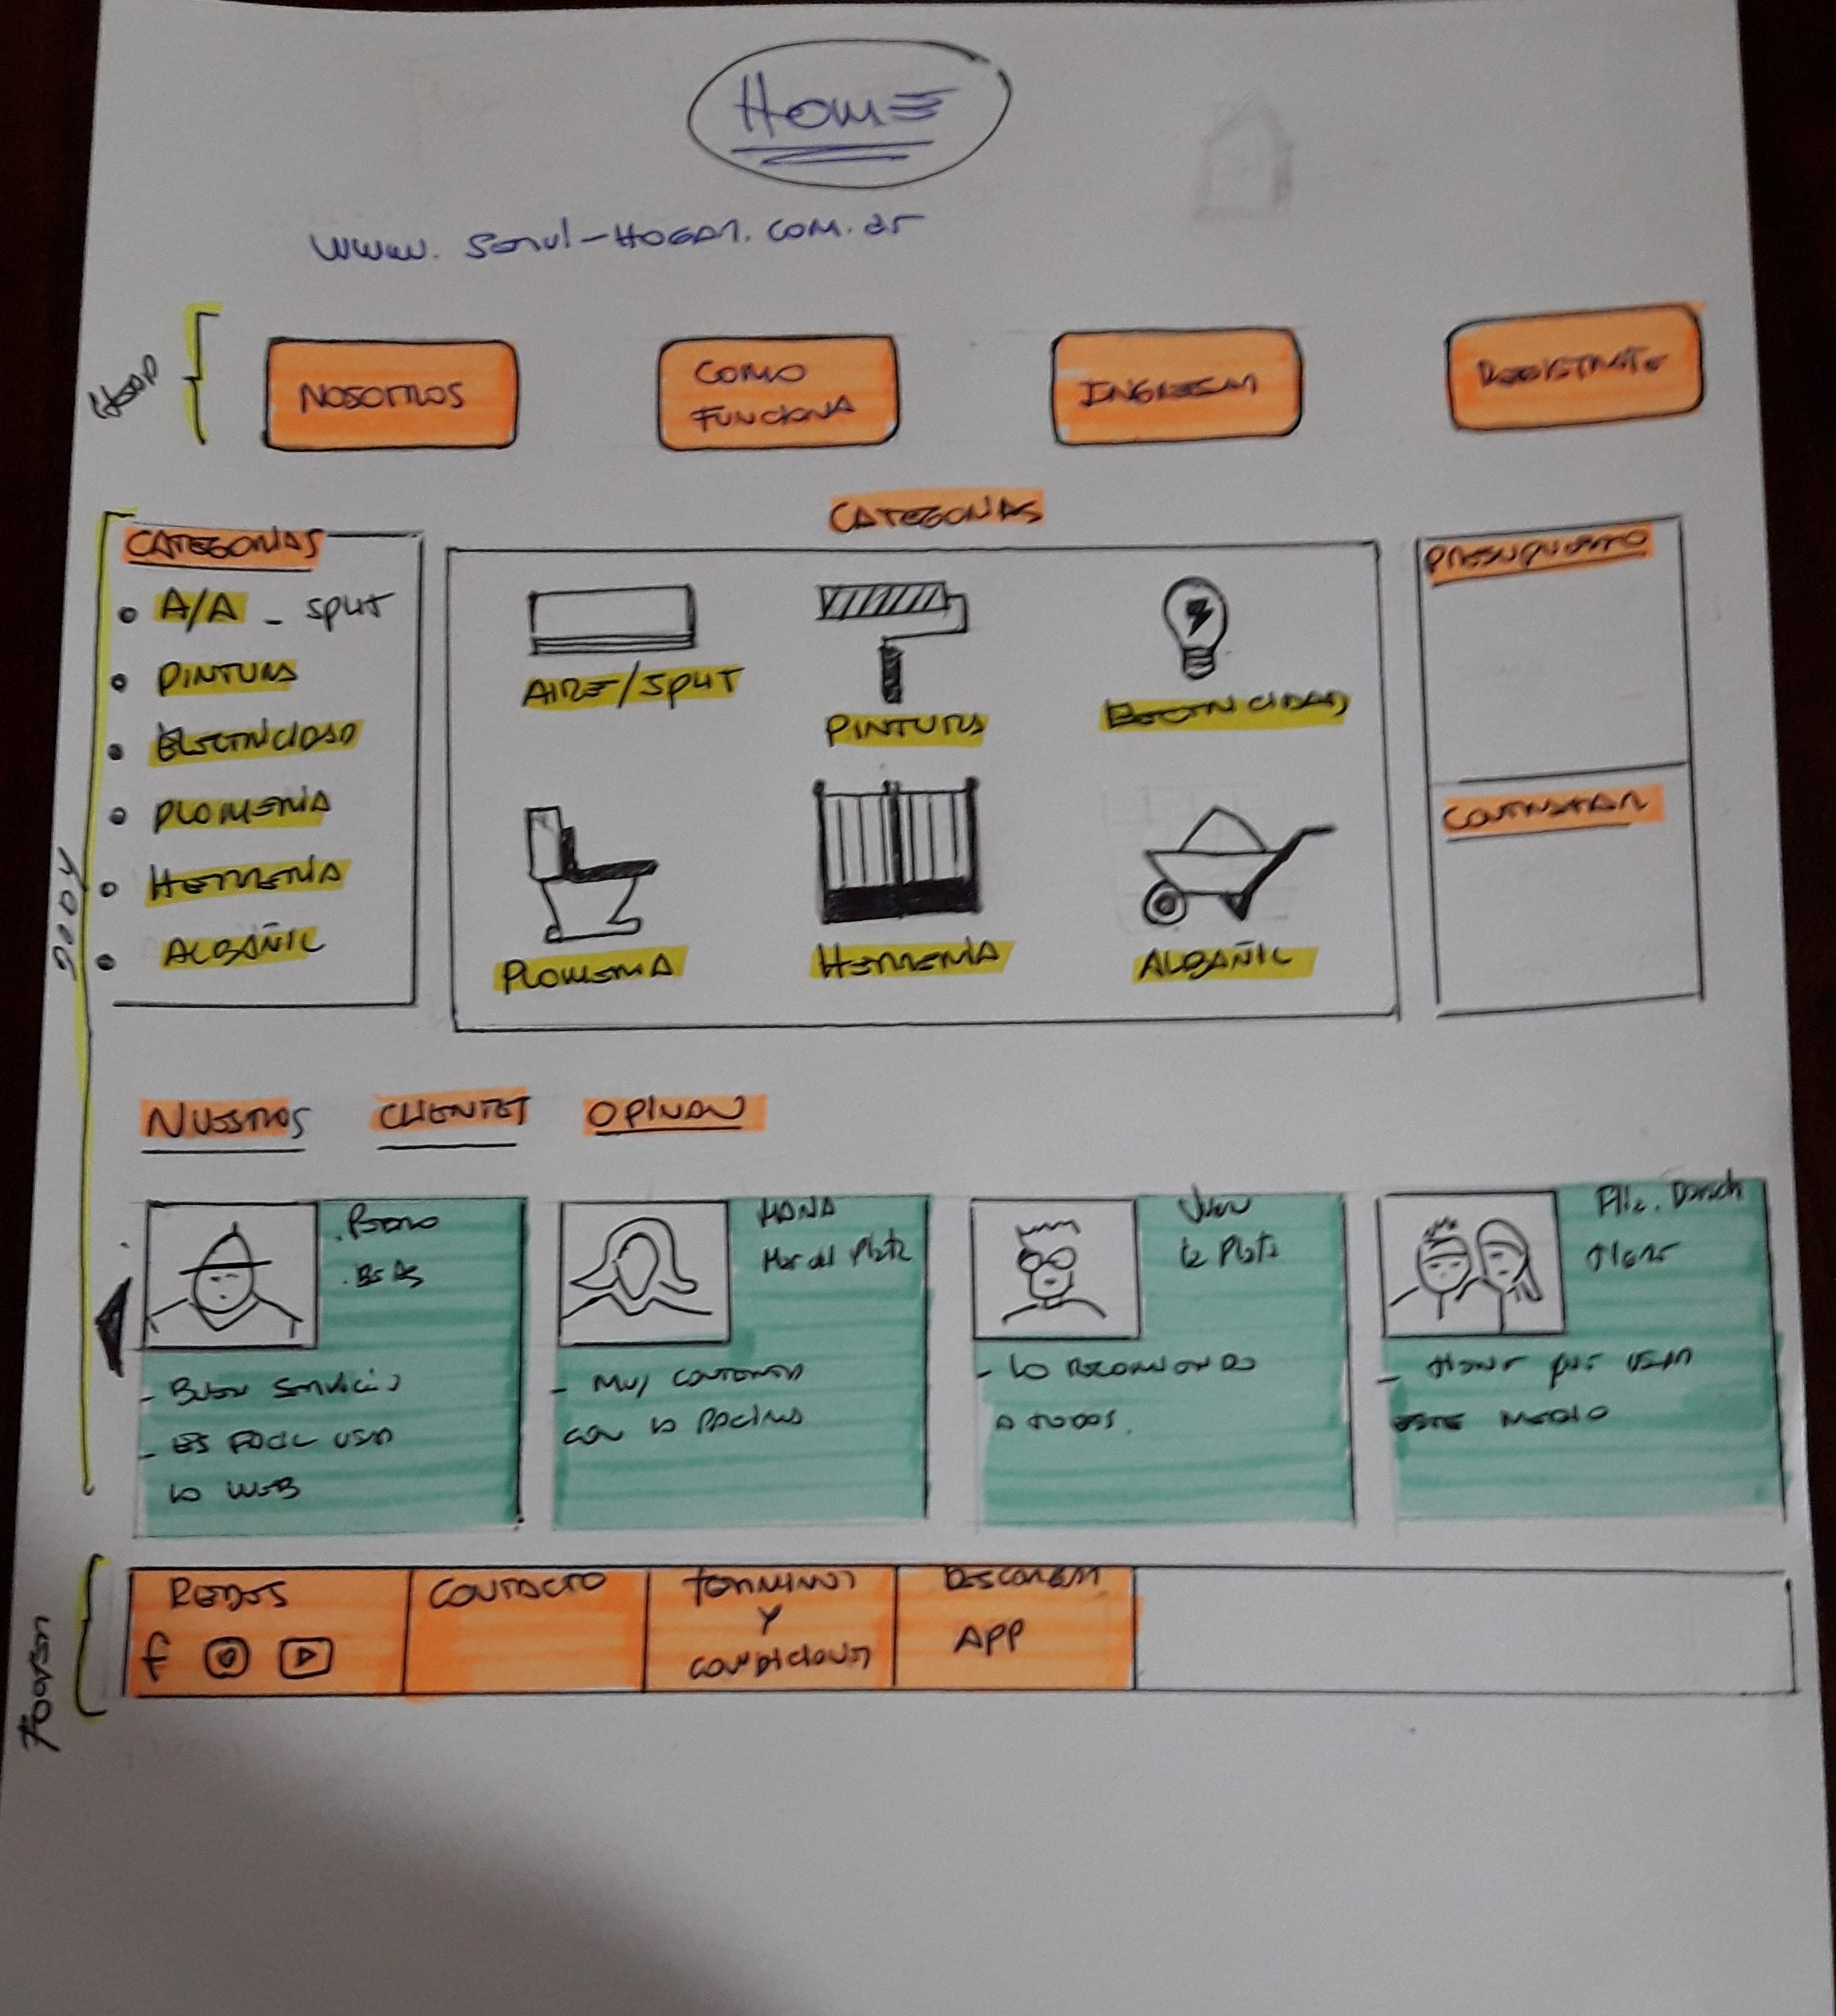 HOME
www. Servi-HOGAR.com.ar
HEAD
NOSOTROS
COMO
FUNCIONA
INGRESAR
REGISTRATE
BODY
CATEGORIAS
A/A - SPLIT
PINTURA
ELECTRICIDAD
PLOMERIA
HERRERIA
ALBAÑIL
CATEGORIAS
AIRE/SPLIT
PINTURA
ELECTRICIDAD
PLOMERIA
HERRERIA
ALBAÑIL
PRESUPUESTO
CONTRATAR
NUESTROS CLIENTES OPINAN
. PEDRO
. BS AS
- BUEN SERVICIO
- ES FACIL USAR
LA WEB
MARIA
Mar del Plata
- MUY CONTENTA
CON LA PAGINA
JUAN
La Plata
- LO RECOMIENDO
A TODOS.
- USAR
ESTE MEDIO
FOOTER
REDES
f
CONTACTO
TERMINOS
Y
CONDICIONES
DESCARGAR
APP